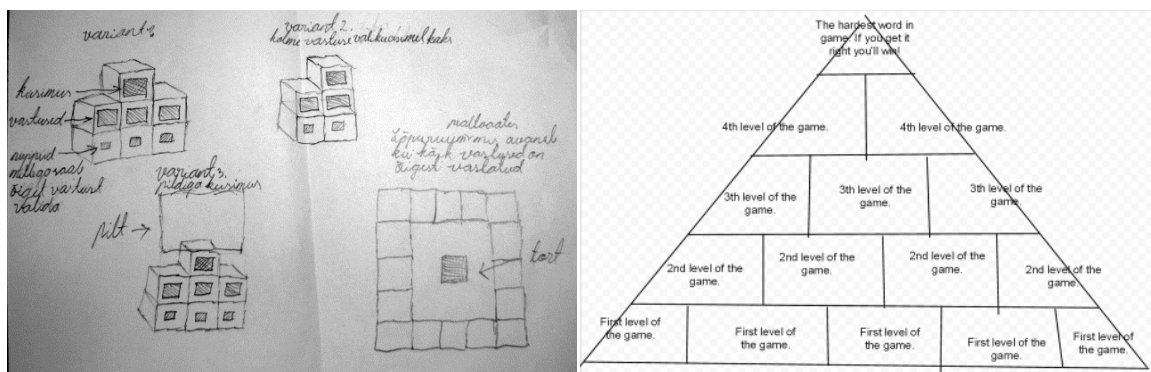 variant 1.
küsimus
vastused
nuppud
millega saab
õiget vastust
valida
variant 2.
kolme vastuse valikuasimel kaks
variant 3.
pildiga küsimus
pilt
pealtvaates
Lõpuruum mis avaneb
kui kõik vastused on
õigest vastatud
tort
The hardest word in
game. If you get it
right you'll win!
4th level of the game.
4th level of the game.
3th level of the
game.
3th level of the
game.
3th level of the
game.
2nd level of the
game.
2nd level of the
game.
2nd level of the
game.
2nd level of the
game.
First level of
the game.
First level of
the game.
First level of
the game.
First level of
the game.
First level of
the game.